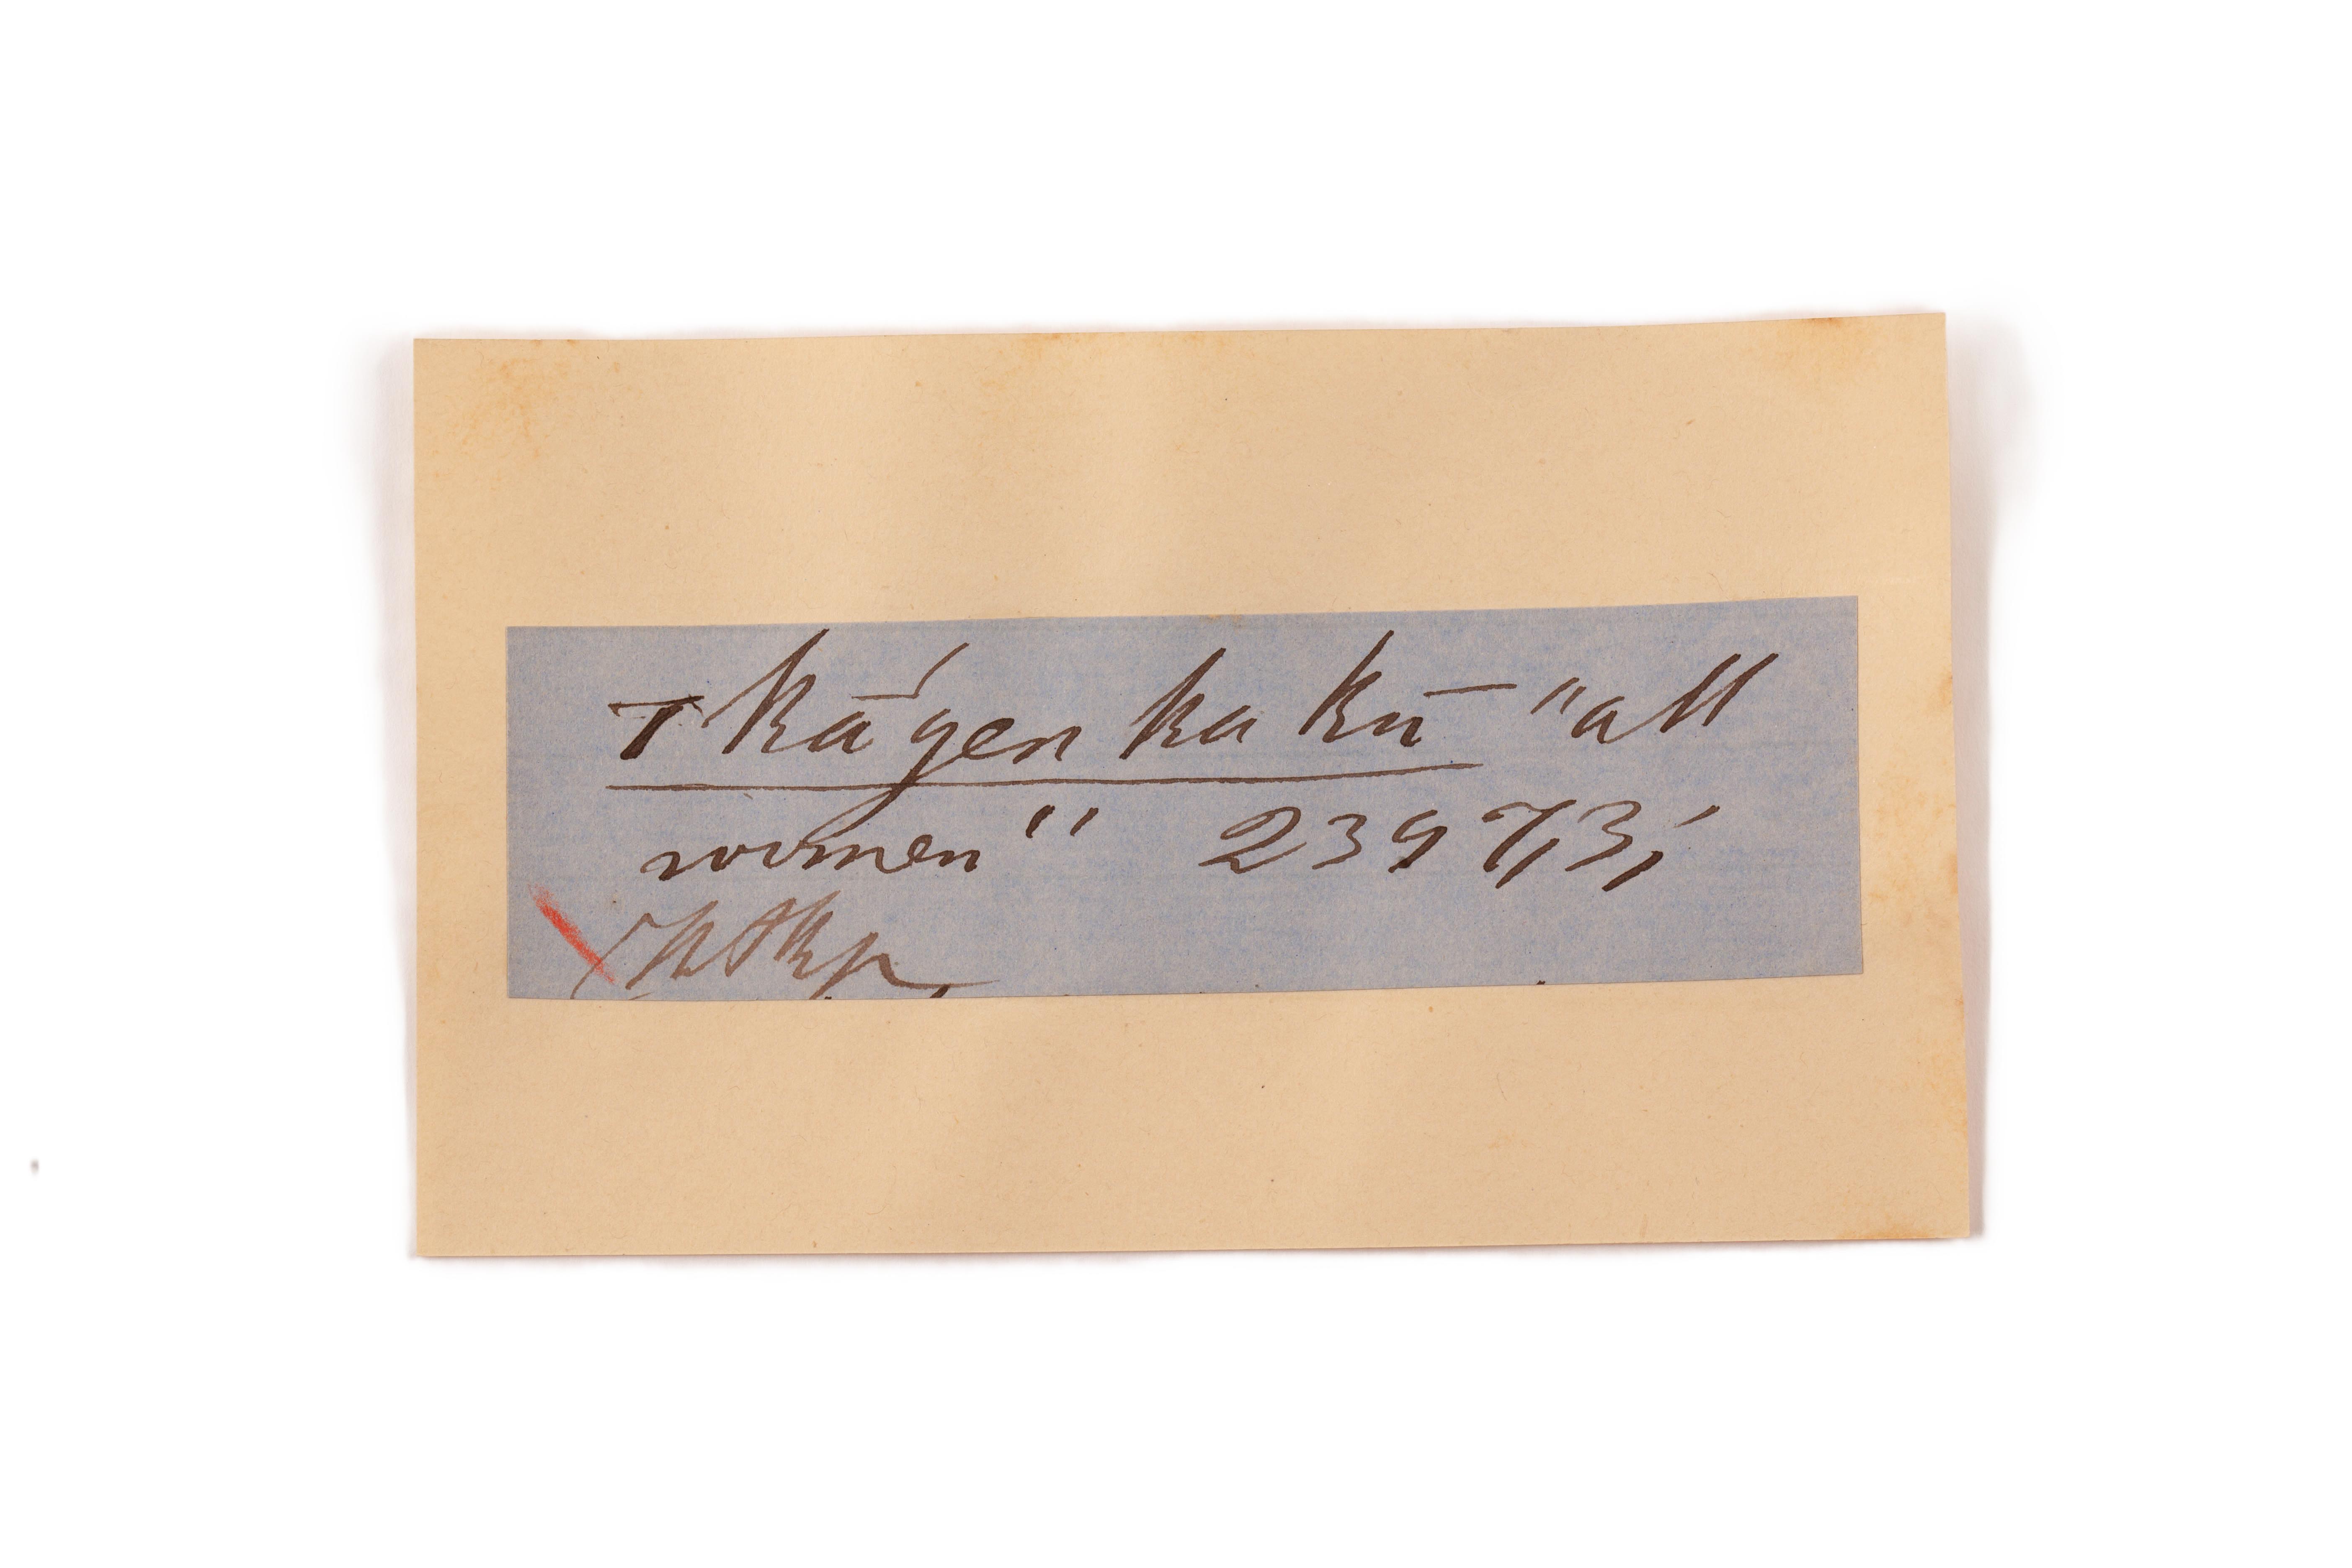 T kā́gen ka kū "all
women" 2397,3,'